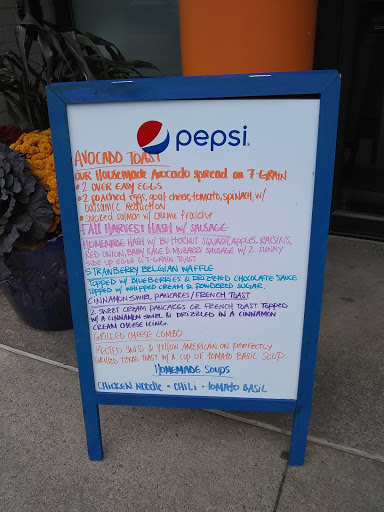 pepsi
AVOCADO TOAST
OUR HOUSEMADE AVOCADO SPREAD ON 7-GRAIN
• 2 OVER EASY EGGS
• 2 poached eggs, goat cheese, tomato, spinach, w/
balsamic reduction
• smoked salmon w/ creme fraiche
FALL HARVEST HASH W/ SAUSAGE
HOMEMADE HASH W/ BUTTERNUT SQUASH, APPLES, RAISINS,
RED ONION, BABY KALE & MUBARRIS SAUSAGE W/ 2 SUNNY
SIDE UP EGGS & 7-GRAIN TOAST
STRAWBERRY BELGIAN WAFFLE
TOPPED W/ BLUEBERRIES & DRIZZLED CHOCOLATE SAUCE
TOPPED W/ WHIPPED CREAM & POWDERED SUGAR.
CINNAMON SWIRL PANCAKES / FRENCH TOAST
2 SWEET CREAM PANCAKES OR FRENCH TOAST TOPPED
W/ A CINNAMON SWIRL & DRIZZLED IN A CINNAMON
CREAM CHEESE ICING.
GRILLED CHEESE COMBO
MELTED SWISS & YELLOW AMERICAN ON PERFECTLY
GRILLED TEXAS TOAST W/ A CUP OF TOMATO BASIL SOUP.
HOMEMADE SOUPS
CHICKEN NOODLE • CHILI • TOMATO BASIL